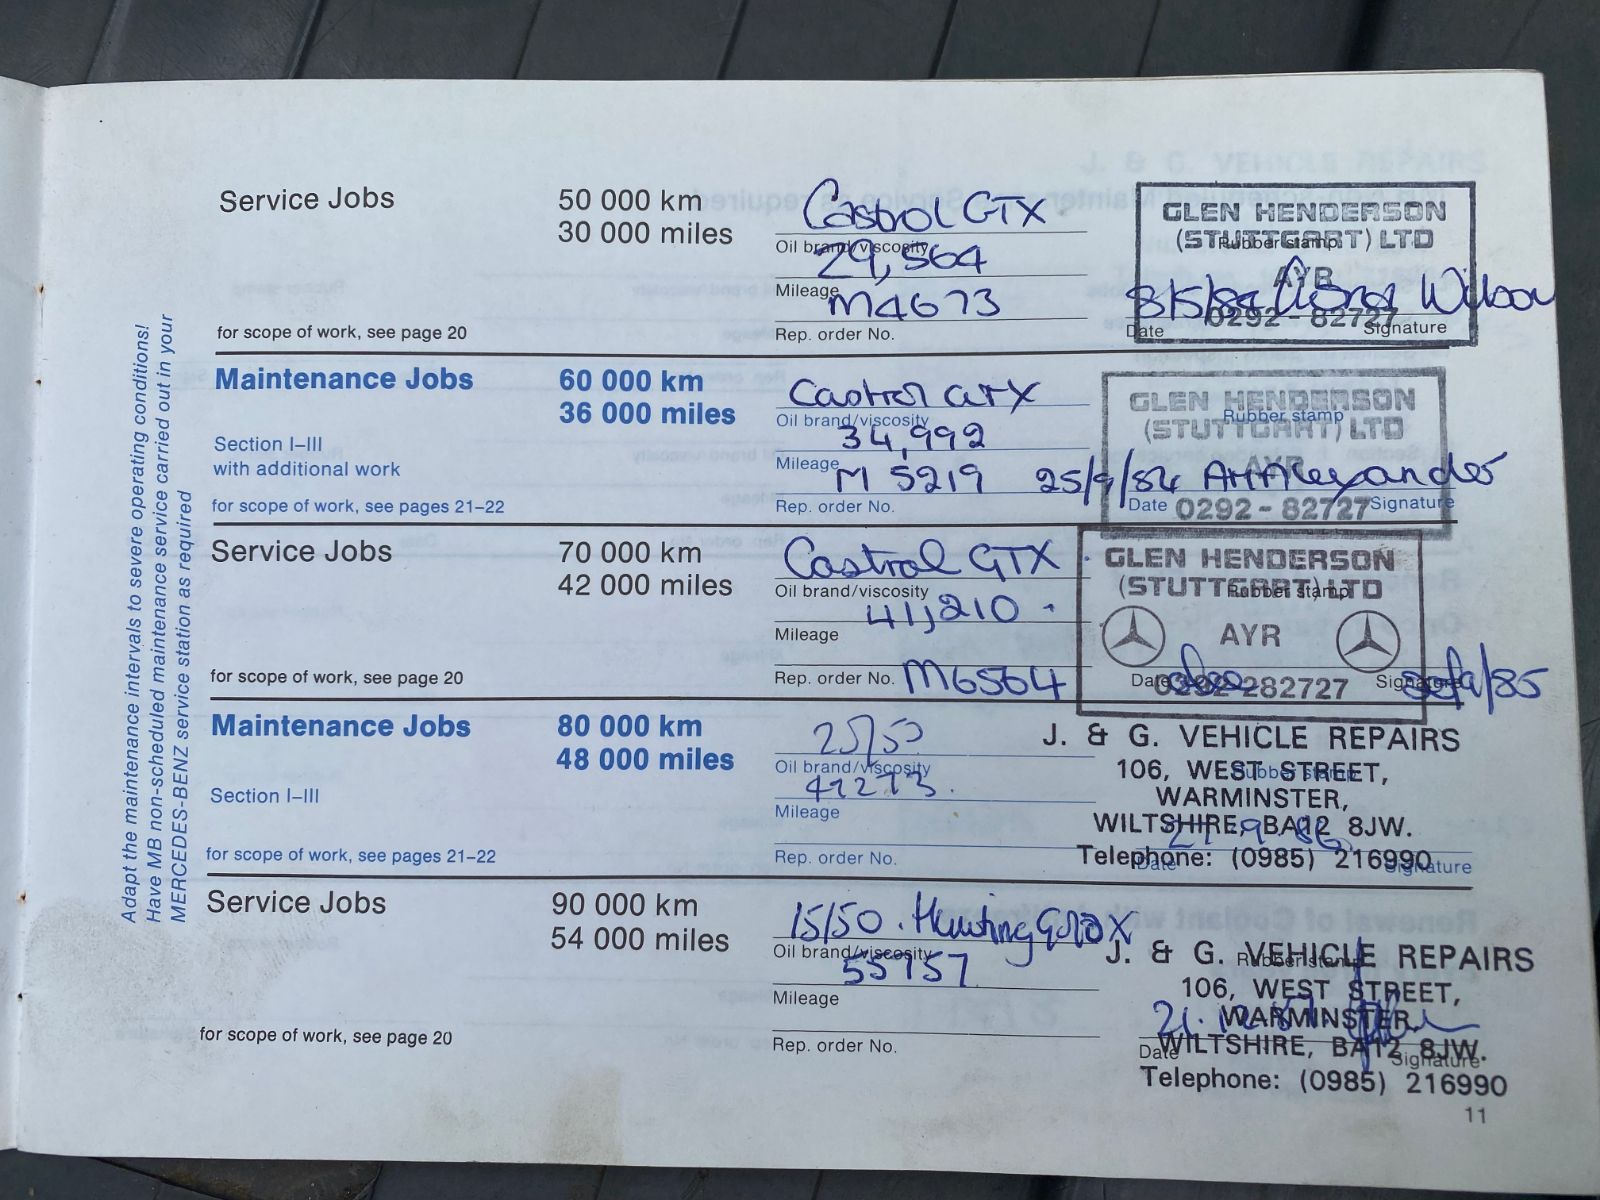 Adapt the maintenance intervals to severe operating conditions!
Have MB non-scheduled maintenance service carried out in your
MERCEDES-BENZ service station as required
Service Jobs
50 000 km
30 000 miles
for scope of work, see page 20
Castrol GTX
Oil brand/viscosity
29,564
Mileage
M4673
Rep. order No.
GLEN HENDERSON
(STUTTGART) LTD
Rubber stamp
AYR
8/5/84 Wilson
0292 - 82727
Date Signature
Maintenance Jobs
60 000 km
36 000 miles
Section I–III
with additional work
for scope of work, see pages 21–22
Castrol GTX
Oil brand/viscosity
34,992
Mileage
M 5219
Rep. order No.
GLEN HENDERSON
Rubber stamp
(STUTTGART) LTD
AYR
25/9/84 Alexander
Date Signature
0292 - 82727
Service Jobs
70 000 km
42 000 miles
for scope of work, see page 20
Castrol GTX
Oil brand/viscosity
41,210
Mileage
M6564
Rep. order No.
GLEN HENDERSON
(STUTTGART) LTD
Rubber stamp
AYR
/85
Date Signature
282727
Maintenance Jobs
80 000 km
48 000 miles
Section I–III
for scope of work, see pages 21–22
Oil brand/viscosity
47273.
Mileage
Rep. order No.
J. & G. VEHICLE REPAIRS
106, WEST STREET,
Rubber stamp
WARMINSTER,
WILTSHIRE, BA12 8JW.
Telephone: (0985) 216990
Date Signature
Service Jobs
90 000 km
54 000 miles
for scope of work, see page 20
15/50.
Oil brand/viscosity
55157
Mileage
Rep. order No.
J. & G. VEHICLE REPAIRS
Rubber stamp
106, WEST STREET,
WARMINSTER,
WILTSHIRE, BA12 8JW.
Date Signature
Telephone: (0985) 216990
11